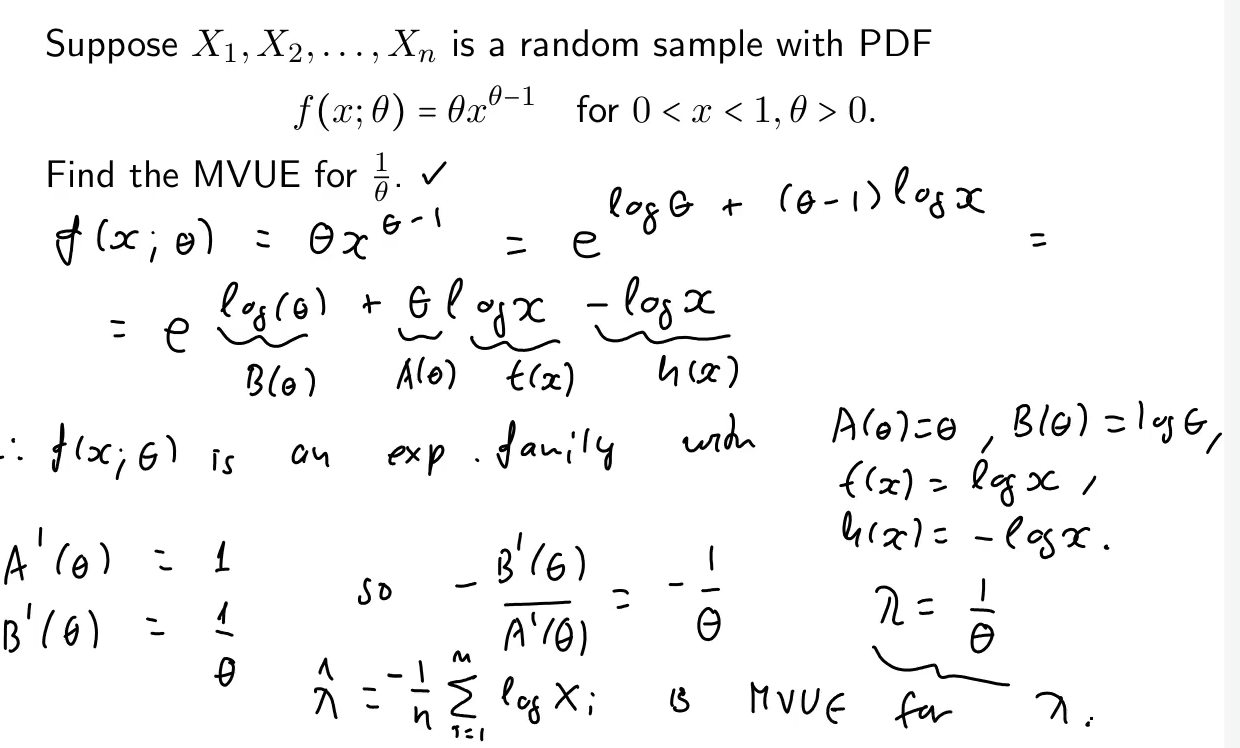 Suppose X₁, X₂, . . . , Xₙ is a random sample with PDF
f(x; θ) = θx^{θ−1} for 0 < x < 1, θ > 0.
Find the MVUE for 1/θ. ✓
f(x; θ) = θx^{θ-1} = e^{log θ + (θ-1) log x} =
= e^{log(θ) + θ log x - log x}
B(θ) A(θ) t(x) h(x)
∴ f(x; θ) is an exp. family with A(θ)=θ, B(θ)=log θ,
t(x) = log x,
h(x) = - log x.
A'(θ) = 1
B'(θ) = 1/θ so - B'(θ)/A'(θ) = - 1/θ λ = 1/θ
λ̂ = -1/n ∑_{i=1}^{n} log Xᵢ is MVUE for λ.